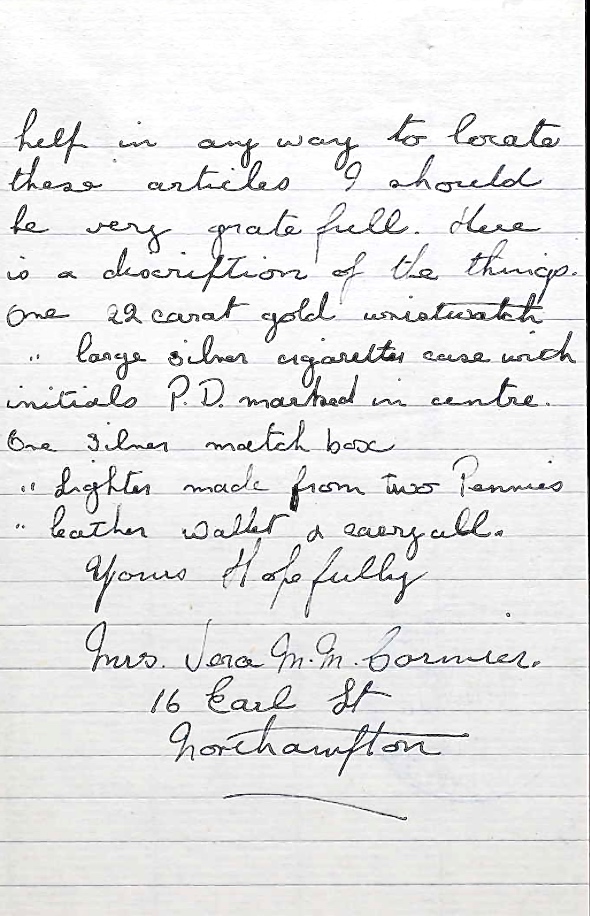 help in any way to locate
these articles I should
be very grate full. Here
is a discription of the things.
One 22 carat gold wristwatch
" large silver cigarette case with
initials P.D. marked in centre.
One silver match box
" Lighter made from two Pennies
" leather wallet &
Yours Hopefully
Mrs. Vera M. M. Cormier.
16 Earl St
Northampton